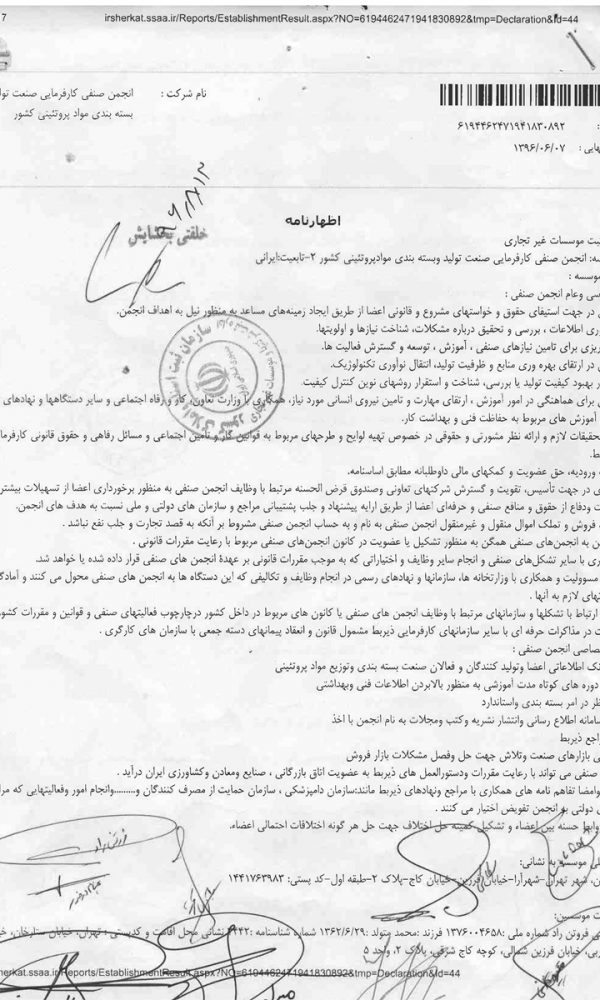 irsherkat.ssaa.ir/Reports/EstablishmentResult.aspx?NO=6194462471941830892&tmp=Declaration&Id=44
نام شرکت : انجمن صنفی کارفرمایی صنعت
بسته بندی مواد پروتئینی کشور
۶۱۹۴۴۶۲۴۷۱۹۴۱۸۳۰۸۹۲
۱۳۹۶/۰۶/۰۷
اظهارنامه
خلقتی بخشایش
موسسات غیر تجاری
انجمن صنفی کارفرمایی صنعت تولید وبسته بندی موادپروتئینی کشور ۲-تابعیت:ایرانی
موسسه :
وعام انجمن صنفی :
در جهت استیفای حقوق و خواستهای مشروع و قانونی اعضا از طریق ایجاد زمینه‌های مساعد به منظور نیل به اهداف انجمن.
اطلاعات ، بررسی و تحقیق درباره مشکلات، شناخت نیازها و اولویتها.
برای تامین نیازهای صنفی ، آموزش ، توسعه و گسترش فعالیت ها.
در ارتقای بهره وری منابع و ظرفیت تولید، انتقال نوآوری تکنولوژیک.
بهبود کیفیت تولید با بررسی، شناخت و استقرار روشهای نوین کنترل کیفیت.
برای هماهنگی در امور آموزش ، ارتقای مهارت و تامین نیروی انسانی مورد نیاز، همکاری با وزارت تعاون، کار و رفاه اجتماعی و سایر دستگاهها و نهادهای
آموزش های مربوط به حفاظت فنی و بهداشت کار.
لازم و ارائه نظر مشورتی و حقوقی در خصوص تهیه لوایح و طرحهای مربوط به قوانین کار و تأمین اجتماعی و مسائل رفاهی و حقوق قانونی
ورودیه، حق عضویت و کمکهای مالی داوطلبانه مطابق اساسنامه.
در جهت تأسیس، تقویت و گسترش شرکتهای تعاونی وصندوق قرض الحسنه مرتبط با وظایف انجمن صنفی به منظور برخورداری اعضا از تسهیلات بیشتر
ودفاع از حقوق و منافع صنفی و حرفه‌ای اعضا از طریق ارایه پیشنهاد و جلب پشتیبانی مراجع و سازمان های دولتی و ملی نسبت به هدف های انجمن.
فروش و تملک اموال منقول و غیرمنقول انجمن صنفی به نام و به حساب انجمن صنفی مشروط بر آنکه به قصد تجارت و جلب نفع نباشد .
به انجمن‌های صنفی همگن به منظور تشکیل یا عضویت در کانون انجمن‌های صنفی مربوط با رعایت مقررات قانونی .
با سایر تشکل‌های صنفی و انجام سایر وظایف و اختیاراتی که به موجب مقررات قانونی بر عهدۀ انجمن های صنفی قرار داده شده یا خواهد شد.
مسوولیت و همکاری با وزارتخانه ها، سازمانها و نهادهای رسمی در انجام وظایف و تکالیفی که این دستگاه ها به انجمن های صنفی محول می کنند و
لازم به آنها .
ارتباط با تشکلها و سازمانهای مرتبط با وظایف انجمن های صنفی یا کانون های مربوط در داخل کشور درچارچوب فعالیتهای صنفی و قوانین و مقررات
در مذاکرات حرفه ای با سایر سازمانهای کارفرمایی ذیربط مشمول قانون و انعقاد پیمانهای دسته جمعی با سازمان های کارگری .
انجمن صنفی :
اطلاعاتی اعضا وتولید کنندگان و فعالان صنعت بسته بندی وتوزیع مواد پروتئینی
دوره های کوتاه مدت آموزشی به منظور بالابردن اطلاعات فنی وبهداشتی
در امر بسته بندی واستاندارد
اطلاع رسانی وانتشار نشریه وکتب ومجلات به نام انجمن با اخذ
ذیربط
بازارهای صنعت وتلاش جهت حل وفصل مشکلات بازار فروش
صنفی می تواند با رعایت مقررات ودستورالعمل های ذیربط به عضویت اتاق بازرگانی ، صنایع ومعادن وکشاورزی ایران درآید .
تفاهم نامه های همکاری با مراجع ونهادهای ذیربط مانند:سازمان دامپزشکی ، سازمان حمایت از مصرف کنندگان و.........وانجام امور وفعالیتهایی که
دولتی به انجمن تفویض اختیار می کنند .
حسنه بین اعضاء و تشکیل کمیته حل اختلاف جهت حل هر گونه اختلافات احتمالی اعضاء.
موسسه به نشانی:
شهر تهران-شهرآرا-خیابان فرزین-خیابان کاج-پلاک ۲-طبقه اول-کد پستی: ۱۴۴۱۷۶۳۹۸۳
موسسین:
فروتن راد شماره ملی :۱۳۷۶۰۰۴۶۵۸ فرزند :محمد متولد :۱۳۶۲/۶/۲۹ شماره شناسنامه نشانی محل اقامت و کدپستی : تهران، خیابان ستارخان،
خیابان فرزین شمالی، کوچه کاج شرقی، پلاک ۲، واحد ۵
herkat.ssaa.ir/Reports/EstablishmentResult.aspx?NO=6194462471941830892&tmp=Declaration&Id=44